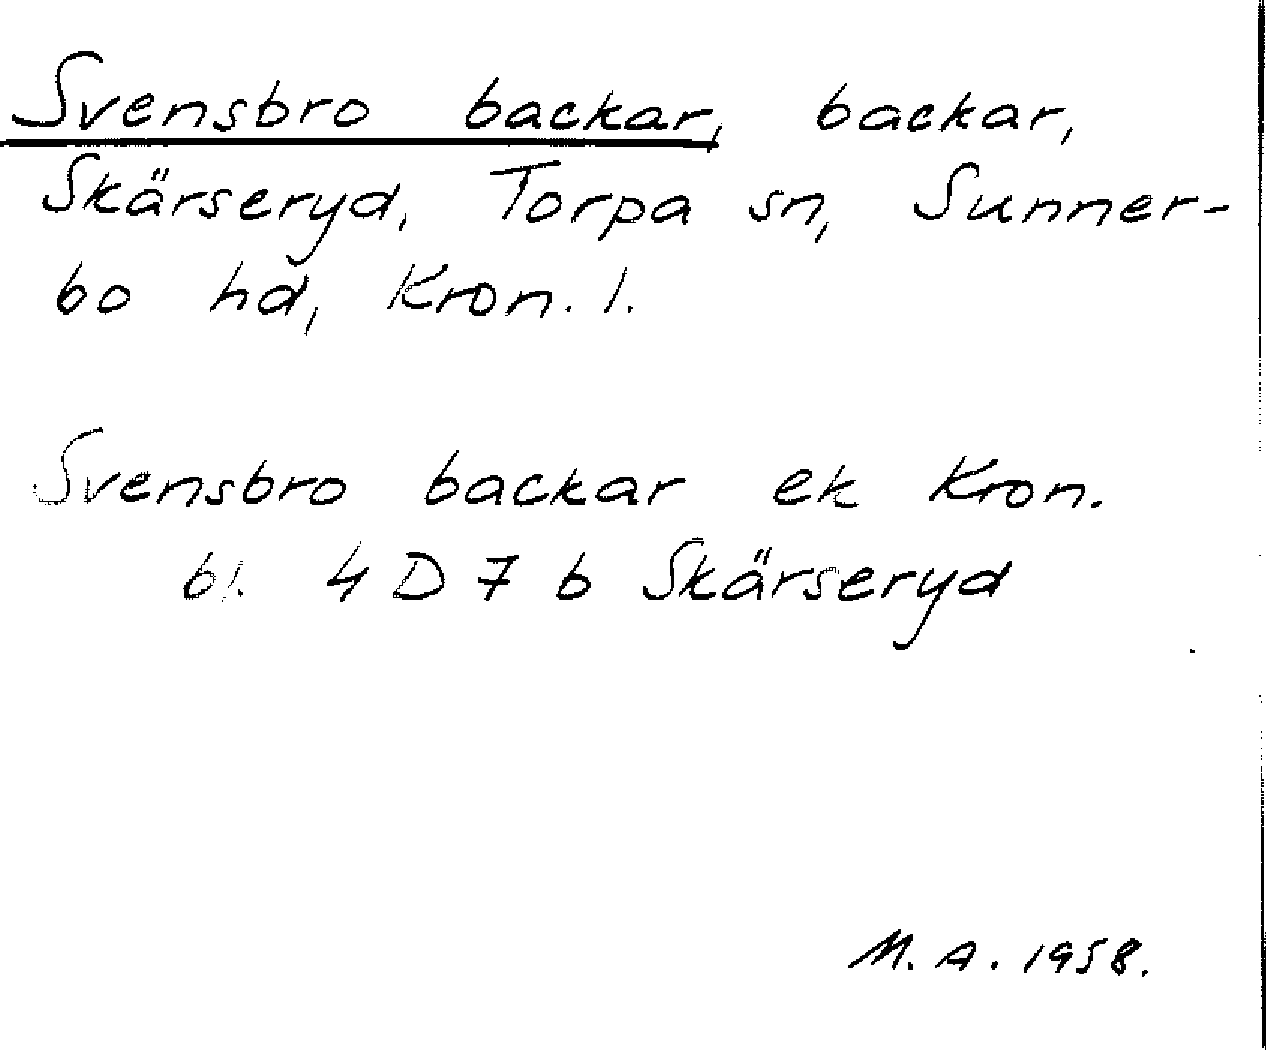 Svensbro backar, backar,
Skärseryd, Torpa sn, Sunner-
bo hd, Kron. l.
Svensbro backar ek Kron.
bl. 4 D 7 b Skärseryd
M. A. 1958.